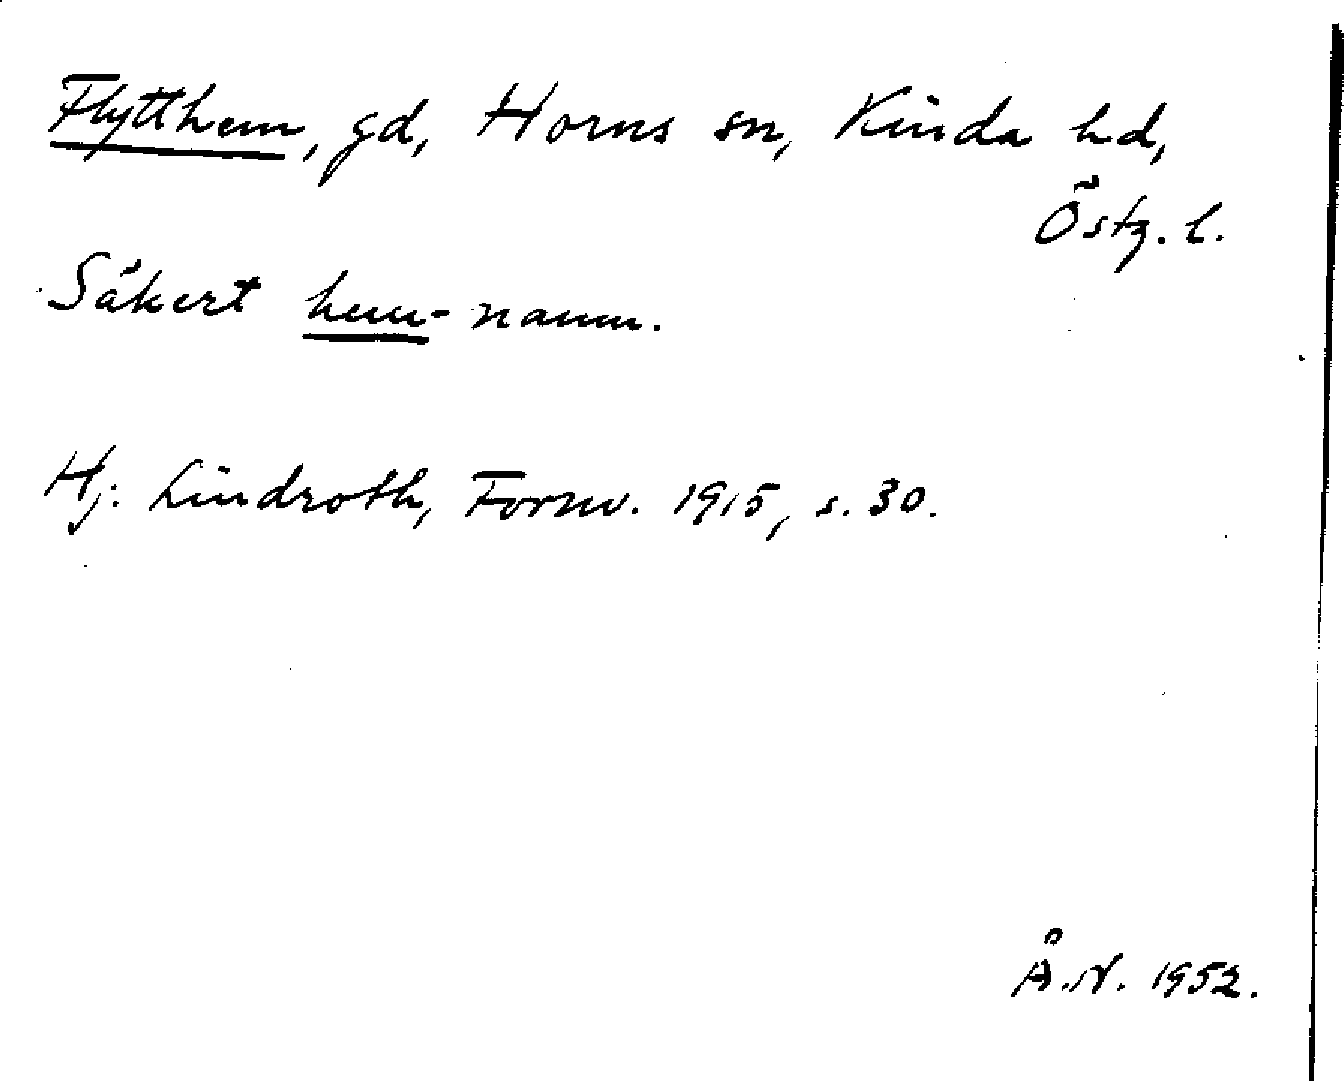 Flytthem, gd, Horns sn, Kinda hd,
Östg. l.
Säkert hem-namn.
Hj. Lindroth, Fornv. 1915, s. 30.
Å.N. 1952.